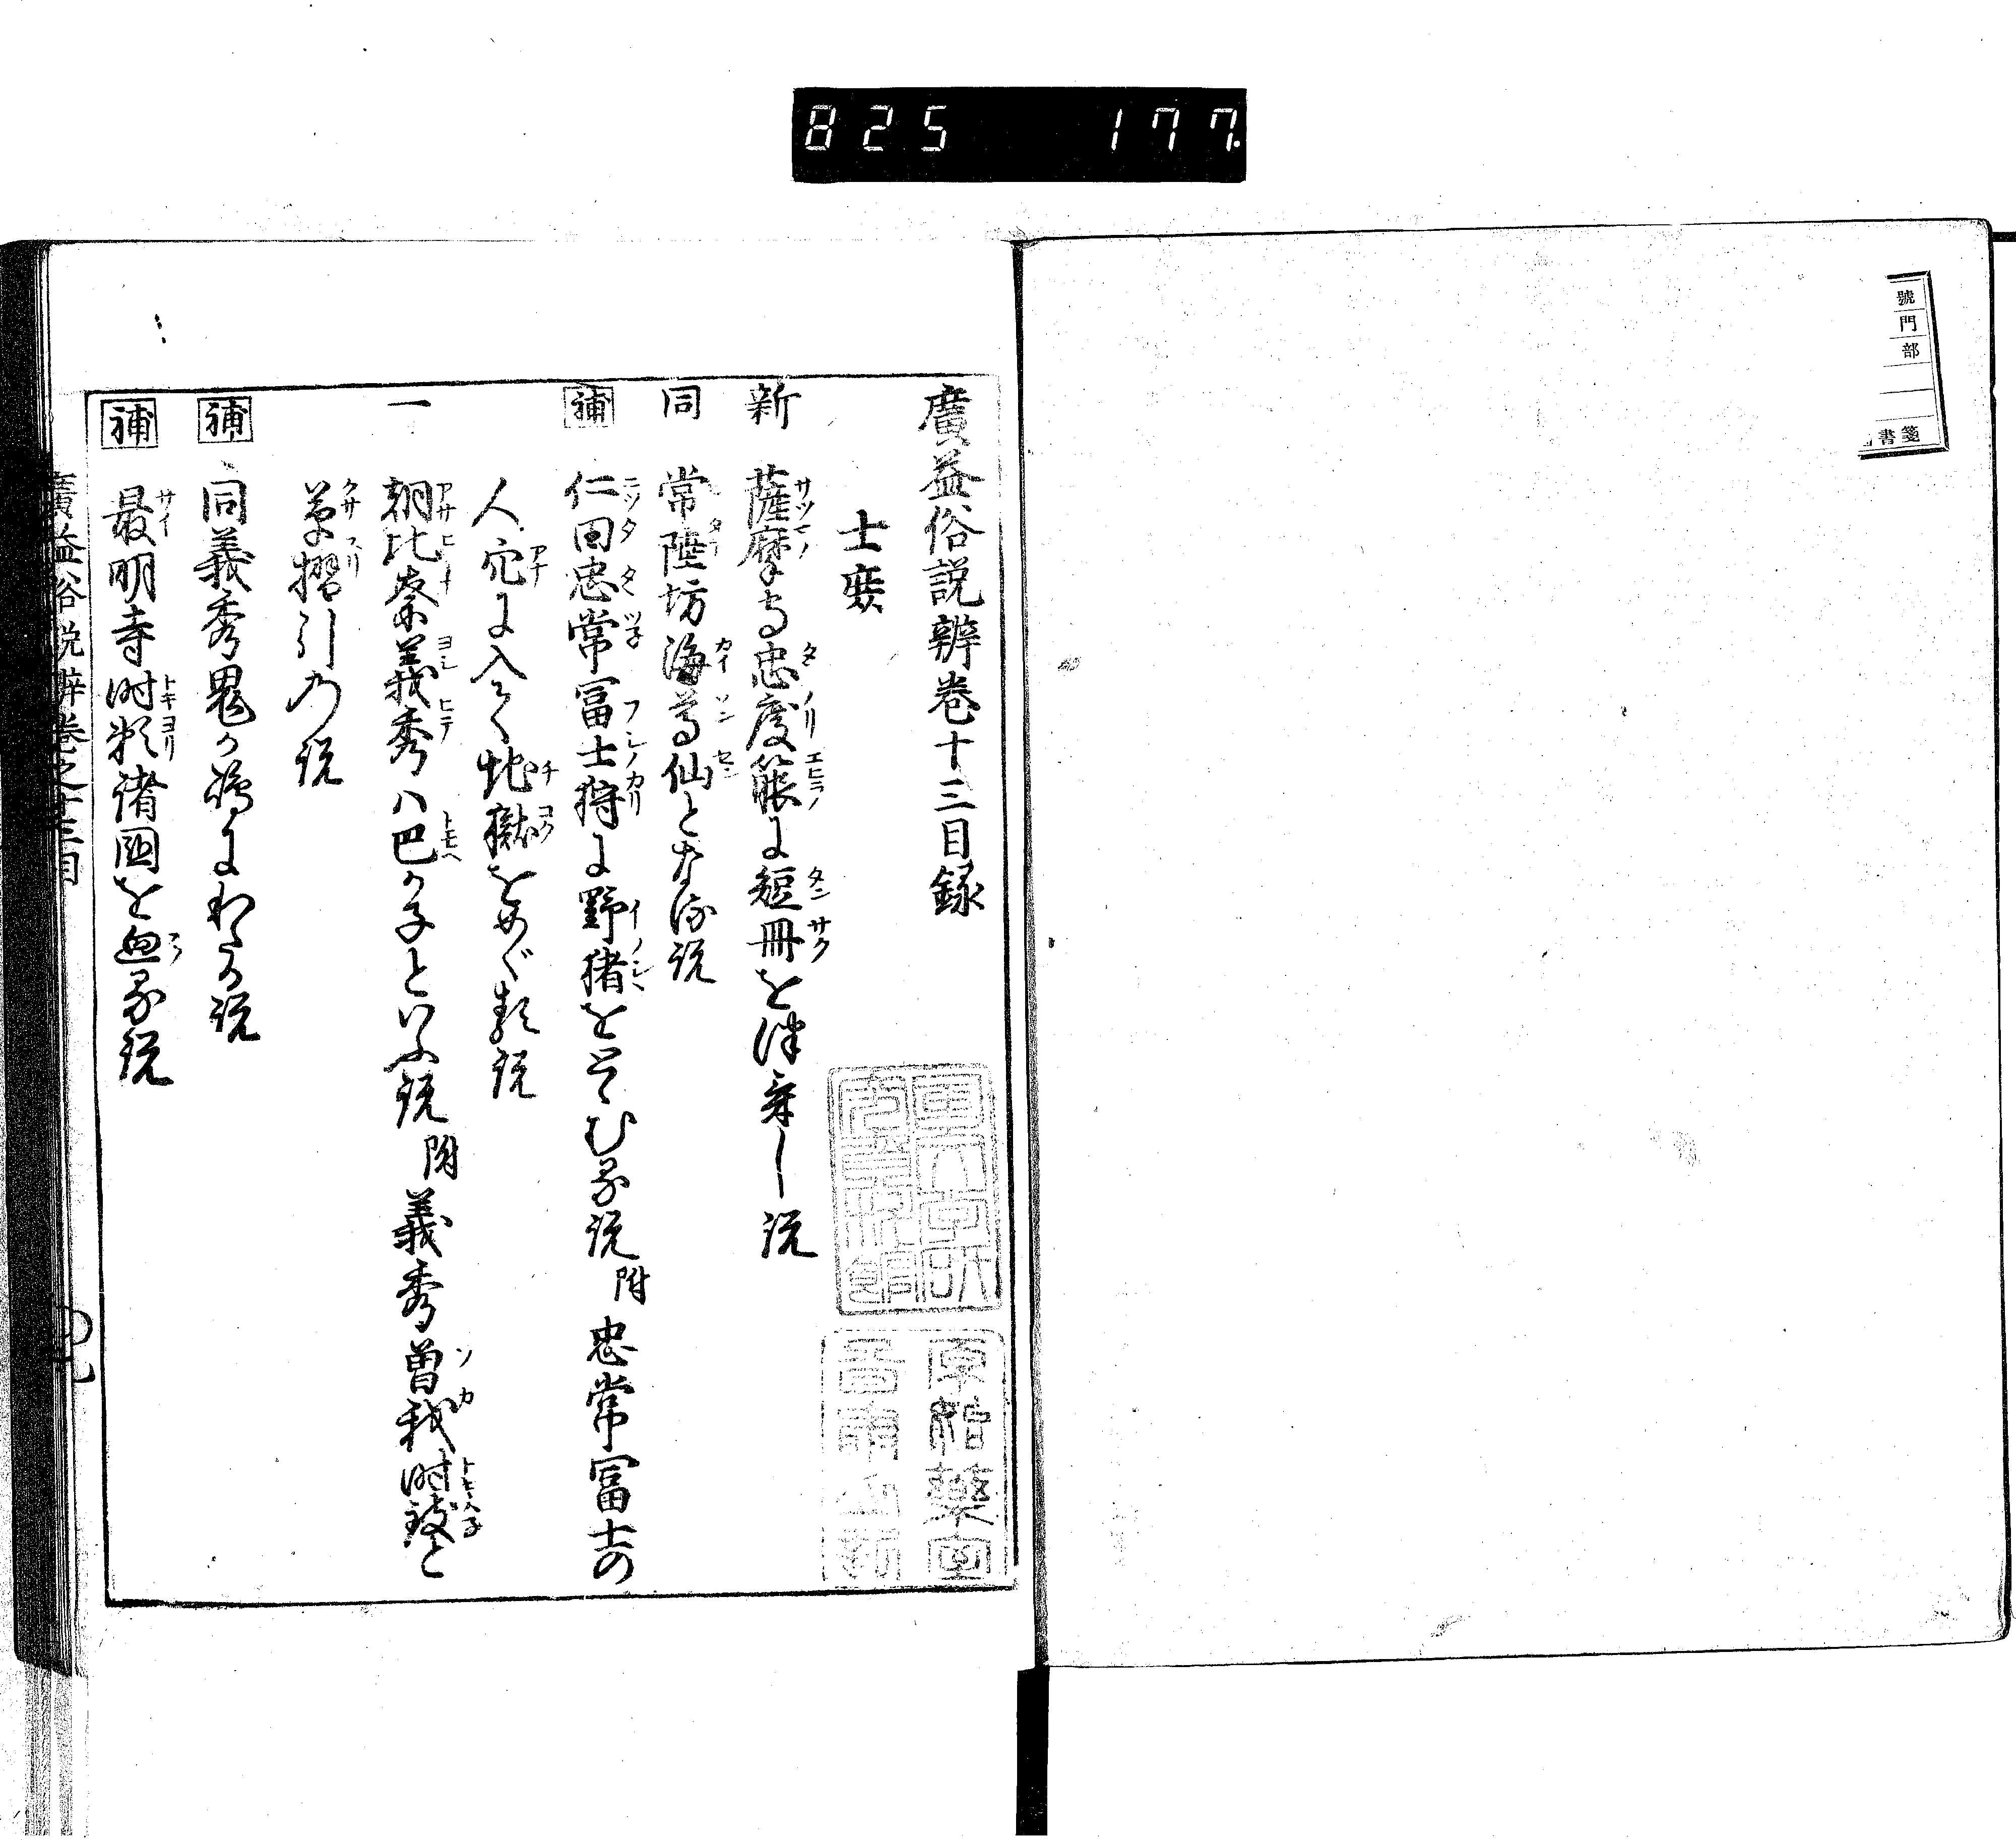 825 177
號
門
部
書箋
廣益俗説辨巻十三目録
士庶
新 薩摩守忠度箙に短冊を津けし説
同 常陸坊海尊仙となる説
補 仁田忠常冨士狩に野猪をとむる説 附 忠常冨士の
人穴に入て地獄をめぐる説
一 朝比奈義秀ハ巴か子といふ説 附 義秀曽我時致と
草摺引の説
補 同義秀鬼か嶋にわたる説
補 最明寺時頼諸國を廻る説
廣益俗説辨巻之十三目